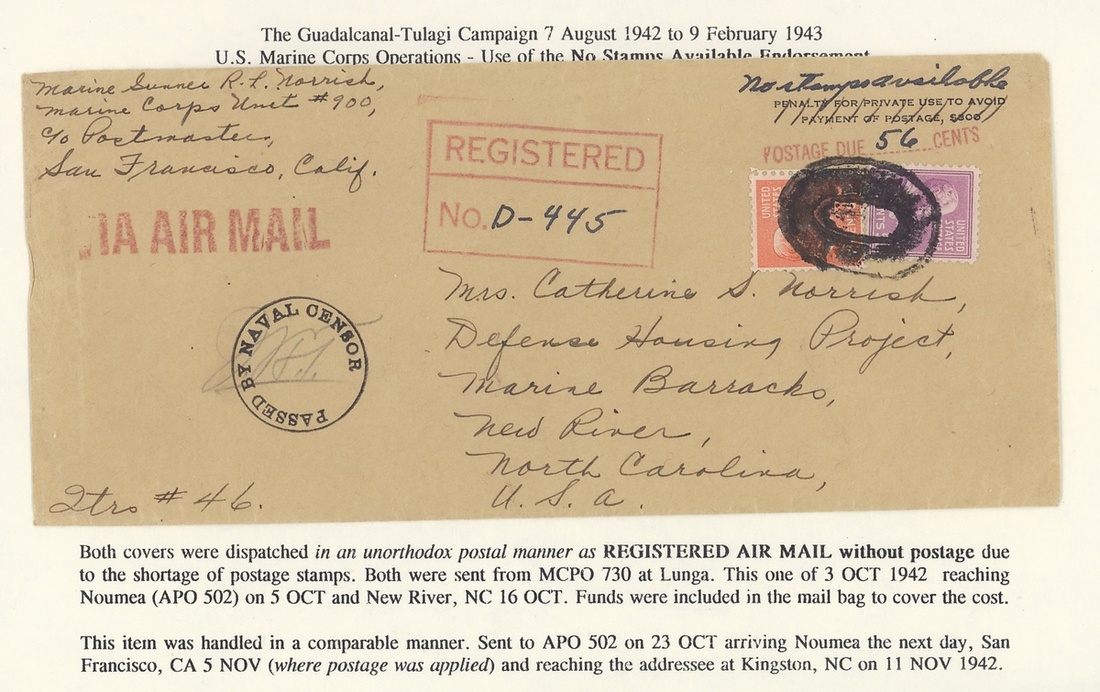 The Guadalcanal-Tulagi Campaign 7 August 1942 to 9 February 1943
U.S. Marine Corps Operations - Use of the No Stamps Available Endorsement
Marine Gunner R. L. Norrish,
Marine Corps Unit #900,
c/o Postmaster,
San Francisco, Calif.
No stamps available
PENALTY FOR PRIVATE USE TO AVOID
PAYMENT OF POSTAGE, $300
POSTAGE DUE 56 CENTS
REGISTERED
No. D-445
UNITED
STATES
UNITED
STATES
IA AIR MAIL
PASSED BY NAVAL CENSOR
Mrs. Catherine S. Norrish,
Defense Housing Project,
Marine Barracks,
New River,
North Carolina,
U. S. A.
Qtrs #46.
Both covers were dispatched in an unorthodox postal manner as REGISTERED AIR MAIL without postage due
to the shortage of postage stamps. Both were sent from MCPO 730 at Lunga. This one of 3 OCT 1942 reaching
Noumea (APO 502) on 5 OCT and New River, NC 16 OCT. Funds were included in the mail bag to cover the cost.
This item was handled in a comparable manner. Sent to APO 502 on 23 OCT arriving Noumea the next day, San
Francisco, CA 5 NOV (where postage was applied) and reaching the addressee at Kingston, NC on 11 NOV 1942.